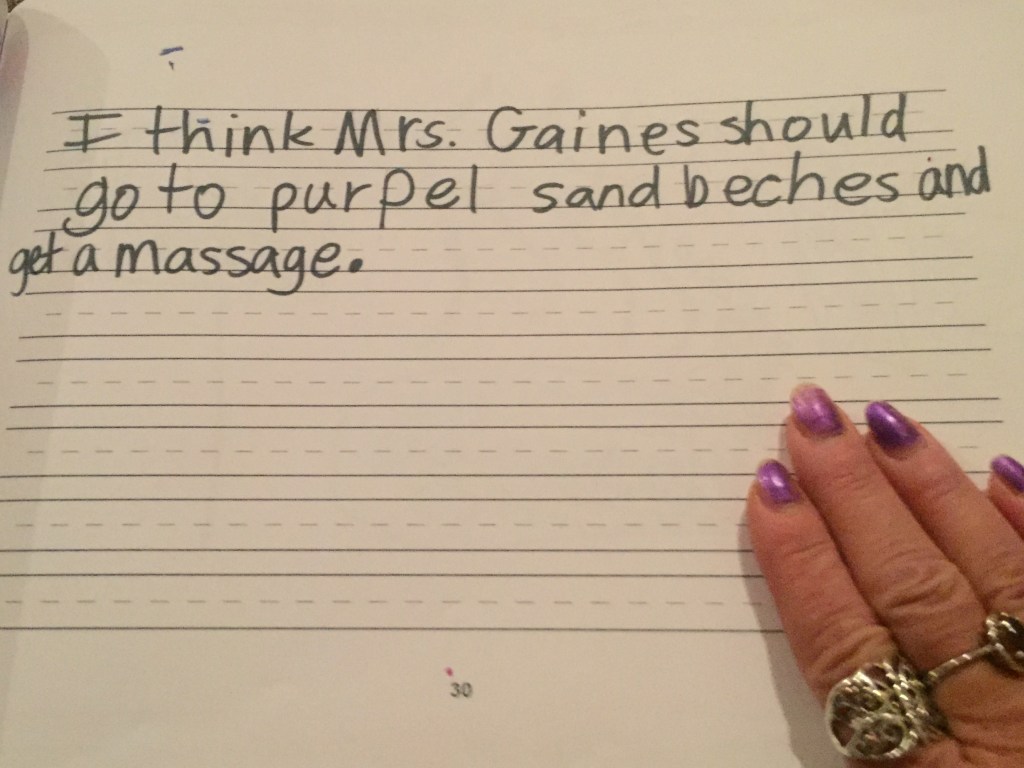 I think Mrs. Gaines should
go to purpel sand beches and
get a massage.
30